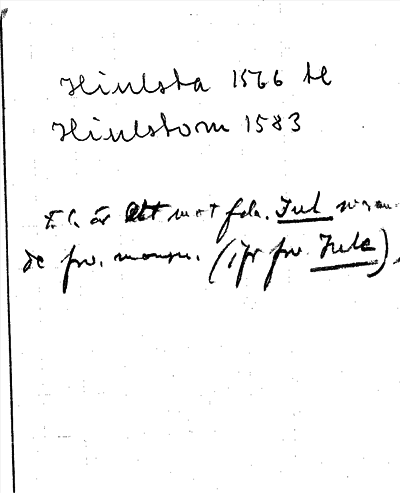 Hiulsta 1566 tl
Hiulstom 1583
F.l. är ett mot fda. Iul svaran-
de frv. mansn. (jfr frv. Jule).